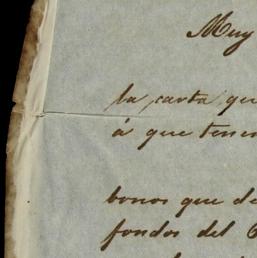 Muy
la carta que
á que tener
bonos que de
fondos del